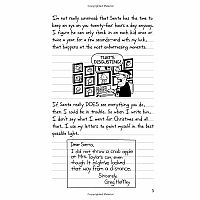 I'm not really convinced that Santa has the time to
keep an eye on you twenty-four hours a day anyway.
I figure he can only check in on each kid once or
twice a year for a few seconds and with my luck,
that happens at the most embarrassing moments.
THAT'S
DISGUSTING!
If Santa really DOES see everything you do,
then I could be in trouble. So when I write him,
I don't say what I want for Christmas and all
that. I use my letters to paint myself in the best
possible light.
Dear Santa,
I did not throw a crab apple
at Mrs. Taylor's cat, even
though it might've looked
that way from a distance.
Sincerely,
Greg Heffley